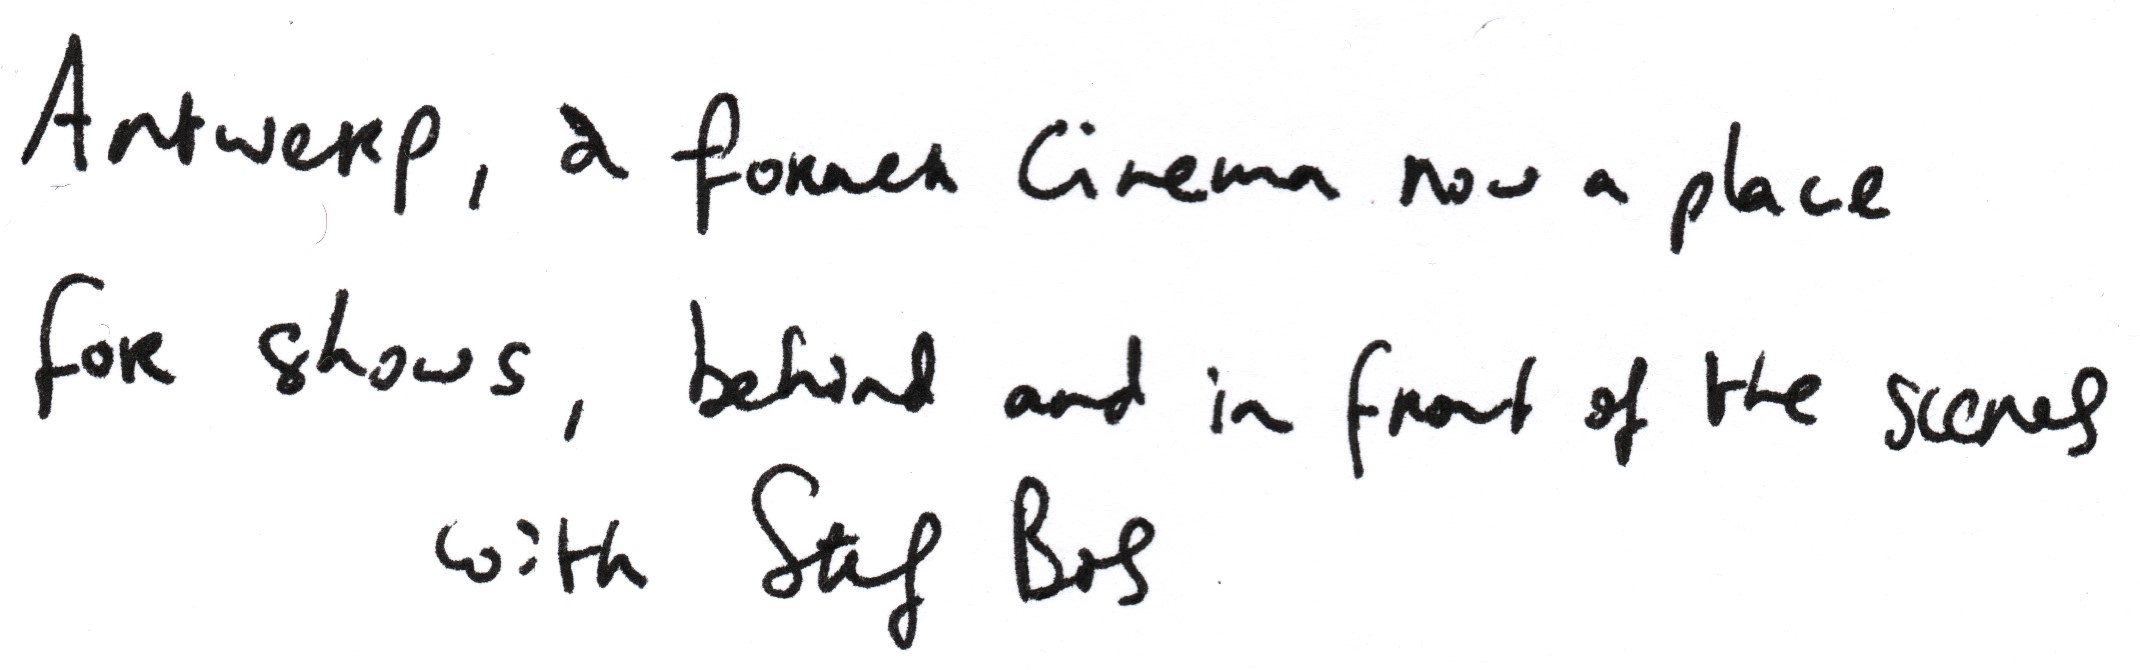 Antwerp, a former Cinema now a place
for shows, behind and in front of the scenes
with Stef Bos